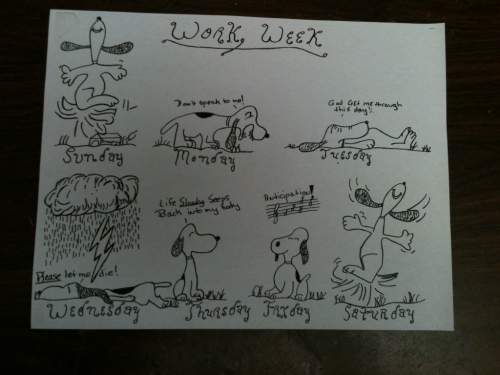 WORK WEEK
Don't speak to me!
God Get me through
this day!
Sunday
Monday
Tuesday
Life Slowly Seeps
Back into my body
Anticipation!
Please let me die!
Wednesday
Thursday
Friday
Saturday